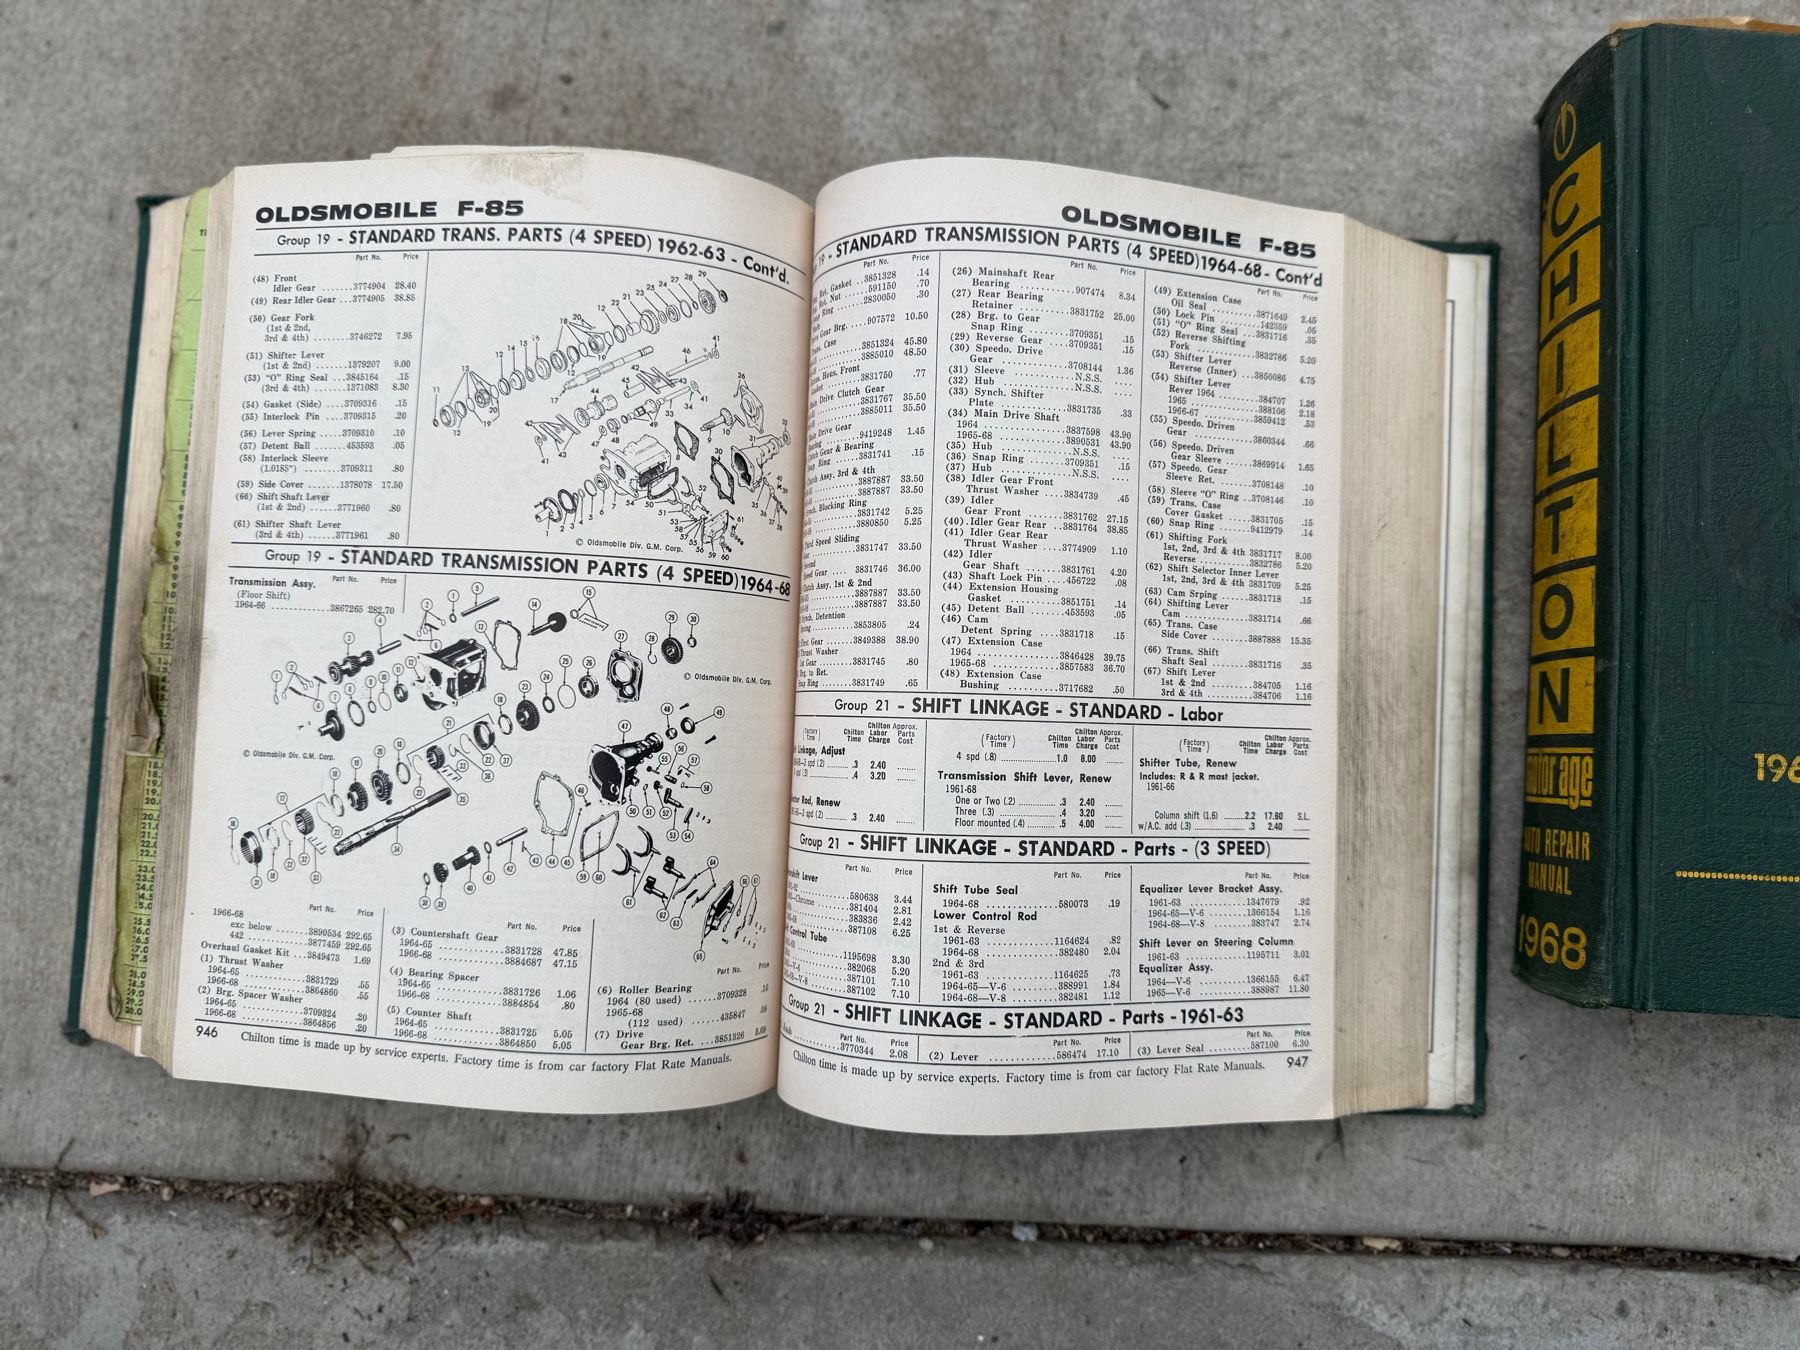 OLDSMOBILE F-85
Group 19 - STANDARD TRANS. PARTS (4 SPEED) 1962-63 - Cont'd.
Part No. Price
(48) Front
Idler Gear ....3774904 28.40
(49) Rear Idler Gear ...3774905 38.85
(50) Gear Fork
(1st & 2nd,
3rd & 4th) ........3746272 7.95
(51) Shifter Lever
(1st & 2nd) ........1379207 9.00
(53) "O" Ring Seal ...3845164 .15
(3rd & 4th) .......1371083 8.30
(54) Gasket (Side) ....3709316 .15
(55) Interlock Pin ....3709315 .20
(56) Lever Spring ....3709310 .10
(57) Detent Ball .......453593 .05
(58) Interlock Sleeve
(1.0185") ..........3709311 .80
(59) Side Cover .......1378078 17.50
(60) Shift Shaft Lever
(1st & 2nd) .......3771960 .80
(61) Shifter Shaft Lever
(3rd & 4th) .......3771961 .80
© Oldsmobile Div. G.M. Corp.
Group 19 - STANDARD TRANSMISSION PARTS (4 SPEED) 1964-68
Transmission Assy. Part No. Price
(Floor Shift)
1964-66 ..............3867265 282.70
© Oldsmobile Div. G.M. Corp.
© Oldsmobile Div. G.M. Corp.
1966-68 Part No. Price
exc below .......3890534 292.65
442 ...............3877459 292.65
Overhaul Gasket Kit ..3849473 1.69
(1) Thrust Washer
1964-65 .............3831729 .55
1966-68 .............3864860 .55
(2) Brg. Spacer Washer
1964-65 .............3709324 .20
1966-68 .............3864856 .20
Part No. Price
(3) Countershaft Gear
1964-65 .............3831728 47.85
1966-68 .............3884687 47.15
(4) Bearing Spacer
1964-65 .............3831726 1.06
1966-68 .............3884854 .80
(5) Counter Shaft
1964-65 .............3831725 5.05
1966-68 .............3864850 5.05
Part No. Price
(6) Roller Bearing
1964 (80 used) .....3709328 .10
1965-68
(112 used) .......435847 .08
(7) Drive
Gear Brg. Ret. ...3851326 3.69
946 Chilton time is made up by service experts. Factory time is from car factory Flat Rate Manuals.
OLDSMOBILE F-85
19 - STANDARD TRANSMISSION PARTS (4 SPEED) 1964-68 - Cont'd
Part No. Price
Ret. Gasket ..3851328 .14
Ret. Nut ......591150 .70
Ring .........2830050 .30
Gear Brg. ....907572 10.50
Case
3851324 45.80
3885010 48.50
Hous. Front
3831750 .77
Main Drive Clutch Gear
3831767 35.50
3885011 35.50
Main Drive Gear
9419248 1.45
Gear & Bearing
Ring ..........3831741 .15
Assy. 3rd & 4th
3887887 33.50
3887887 33.50
Synch. Blocking Ring
3831742 5.25
3880850 5.25
Third Speed Sliding
Gear ..........3831747 33.50
Second
Speed Gear ....3831746 36.00
Assy. 1st & 2nd
3887887 33.50
3887887 33.50
Synch. Detention
Spring ........3853805 .24
First Gear ....3849388 38.90
Thrust Washer
1st Gear ......3831745 .80
Brg. to Ret.
Snap Ring .....3831749 .65
Part No. Price
(26) Mainshaft Rear
Bearing ............907474 8.34
(27) Rear Bearing
Retainer ..........3831752 25.00
(28) Brg. to Gear
Snap Ring ........3709351 .15
(29) Reverse Gear ...3709351 .15
(30) Speedo. Drive
Gear ..............3708144 1.36
(31) Sleeve ............N.S.S. ....
(32) Hub ...............N.S.S. ....
(33) Synch. Shifter
Plate .............3831735 .33
(34) Main Drive Shaft
1964 ..............3837598 43.90
1965-68 ...........3890531 43.90
(35) Hub ...............N.S.S. ....
(36) Snap Ring ......3709351 .15
(37) Hub ...............N.S.S. ....
(38) Idler Gear Front
Thrust Washer ....3834739 .45
(39) Idler
Gear Front .......3831762 27.15
(40) Idler Gear Rear ..3831764 38.85
(41) Idler Gear Rear
Thrust Washer ....3774909 1.10
(42) Idler
Gear Shaft .......3831761 4.20
(43) Shaft Lock Pin ....456722 .08
(44) Extension Housing
Gasket ............3851751 .14
(45) Detent Ball .......453593 .05
(46) Cam
Detent Spring ....3831718 .15
(47) Extension Case
1964 ..............3846428 39.75
1965-68 ...........3857583 36.70
(48) Extension Case
Bushing ...........3717682 .50
Part No. Price
(49) Extension Case
Oil Seal ..........3871649 2.45
(50) Lock Pin .........142359 .05
(51) "O" Ring Seal ...3831716 .35
(52) Reverse Shifting
Fork ..............3832786 5.20
(53) Shifter Lever
Reverse (Inner) ...3850086 4.75
(54) Shifter Lever
Rever 1964 .........384707 1.26
1965 ...............388106 2.18
1966-67 ...........3859412 .53
(55) Speedo. Driven
Gear ..............3860344 .66
(56) Speedo. Driven
Gear Sleeve .......3869914 1.65
(57) Speedo. Gear
Sleeve Ret. .......3708148 .10
(58) Sleeve "O" Ring ..3708146 .10
(59) Trans. Case
Cover Gasket ......3831705 .15
(60) Snap Ring .......9412979 .14
(61) Shifting Fork
1st, 2nd, 3rd & 4th 3831717 8.00
Reverse ...........3832786 5.20
(62) Shift Selector Inner Lever
1st, 2nd, 3rd & 4th 3831709 5.25
(63) Cam Srping ......3831718 .15
(64) Shifting Lever
Cam ...............3831714 .66
(65) Trans. Case
Side Cover ........3887888 15.35
(66) Trans. Shift
Shaft Seal ........3831716 .35
(67) Shift Lever
1st & 2nd ..........384705 1.16
3rd & 4th ..........384706 1.16
Group 21 - SHIFT LINKAGE - STANDARD - Labor
(Factory Time) Chilton Time Chilton Labor Charge Approx. Parts Cost
Linkage, Adjust
3 spd (.2) ......... .3 2.40 ......
spd (.3) ........... .4 3.20 ......
Rod, Renew
3 spd (.2) ......... .3 2.40 ......
(Factory Time) Chilton Time Chilton Labor Charge Approx. Parts Cost
4 spd (.8) ............. 1.0 8.00 ......
Transmission Shift Lever, Renew
1961-68
One or Two (.2) ............ .3 2.40 ......
Three (.3) .................. .4 3.20 ......
Floor mounted (.4) ......... .5 4.00 ......
(Factory Time) Chilton Time Chilton Labor Charge Approx. Parts Cost
Shifter Tube, Renew
Includes: R & R mast jacket.
1961-66
Column shift (1.6) ........ 2.2 17.60 S.L.
w/A.C. add (.3) ........... .3 2.40 ......
Group 21 - SHIFT LINKAGE - STANDARD - Parts - (3 SPEED)
Part No. Price
Lever
580638 3.44
Chrome ......381404 2.81
383836 2.42
387108 6.25
Control Tube
1195698 3.30
V-6 ..........382068 5.20
387101 7.10
V-8 ..........387102 7.10
Part No. Price
Shift Tube Seal
1964-68 ..............580073 .19
Lower Control Rod
1st & Reverse
1961-63 .............1164624 .82
1964-68 ..............382480 2.04
2nd & 3rd
1961-63 .............1164625 .73
1964-65—V-6 .........388991 1.84
1964-68—V-8 .........382481 1.12
Part No. Price
Equalizer Lever Bracket Assy.
1961-63 .............1347679 .92
1964-65—V-6 ........1366154 1.16
1964-68—V-8 .........383747 2.74
Shift Lever on Steering Column
1961-63 .............1195711 3.01
Equalizer Assy.
1964—V-6 ...........1366155 6.47
1965—V-6 ............388987 11.80
Group 21 - SHIFT LINKAGE - STANDARD - Parts - 1961-63
Part No. Price
3770344 2.08
Part No. Price
(2) Lever ................586474 17.10
Part No. Price
(3) Lever Seal .........587100 6.30
Chilton time is made up by service experts. Factory time is from car factory Flat Rate Manuals. 947
CHILTON
motor age
AUTO REPAIR
MANUAL
1968
196